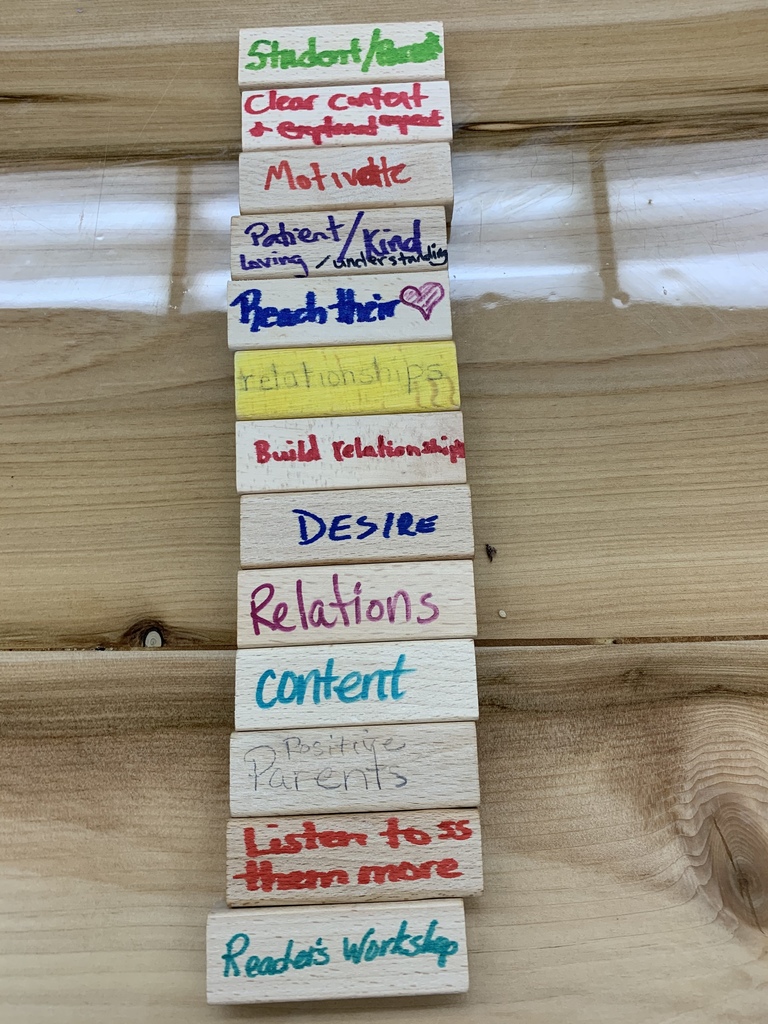 Student/Parent
Clear content
+
Motivate
Patient/Kind
Loving/understanding
Reach their
relationships
Build relationships
DESIRE
Relations
content
Positive
Parents
Listen to ss
them more
Reader's Workshop